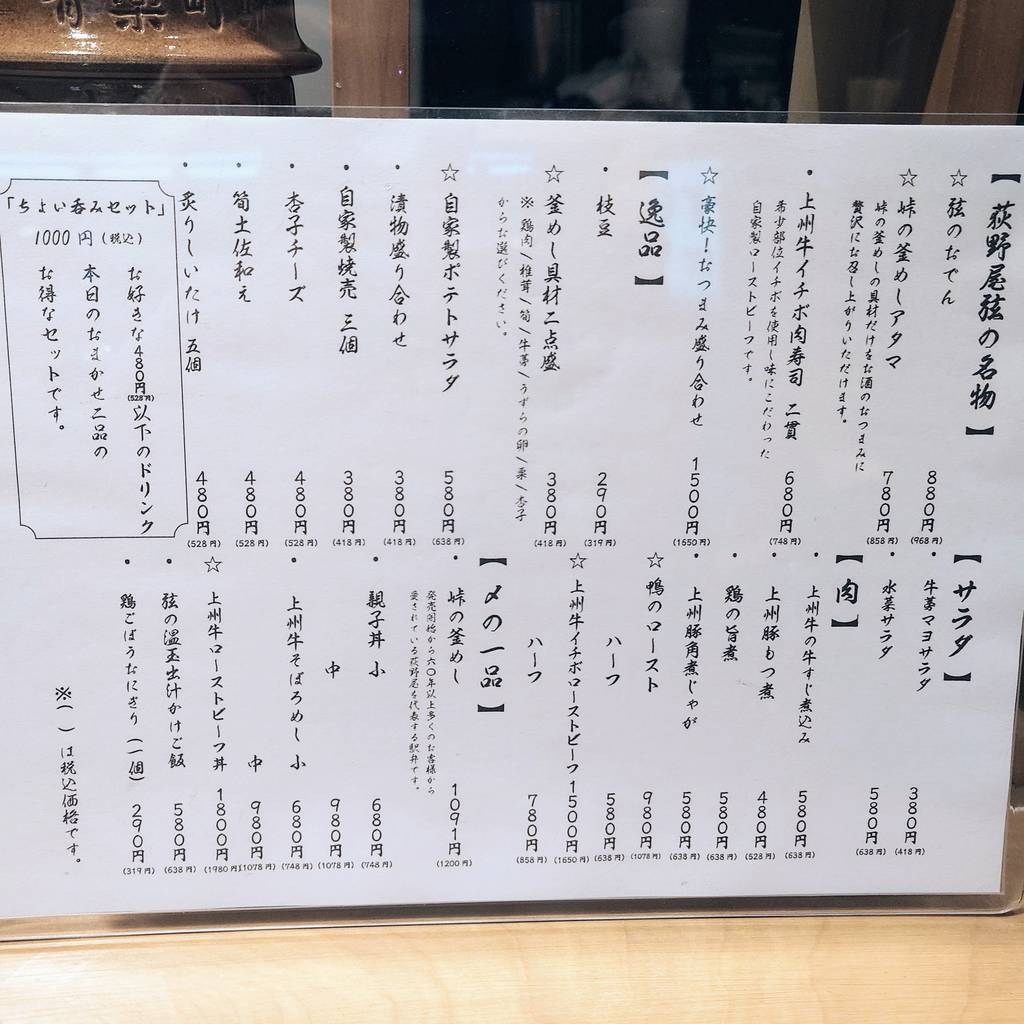 【荻野屋弦の名物】
☆弦のおでん 880円 (968円)
☆峠の釜めしアタマ 780円 (858円)
峠の釜めしの具材だけをお酒のおつまみに
贅沢にお召し上がりいただけます。
・上州牛イチボ肉寿司 二貫 680円 (748円)
希少部位イチボを使用し味にこだわった
自家製ローストビーフです。
☆豪快！おつまみ盛り合わせ 1500円 (1650円)
【逸品】
・枝豆 290円 (319円)
☆釜めし具材二点盛 380円 (418円)
※鶏肉/椎茸/筍/牛蒡/うずらの卵/栗/杏子
からお選びください。
☆自家製ポテトサラダ 580円 (638円)
・漬物盛り合わせ 380円 (418円)
・自家製焼売 三個 380円 (418円)
・杏子チーズ 480円 (528円)
・筍土佐和え 480円 (528円)
・炙りしいたけ 五個 480円 (528円)
「ちょい呑みセット」
1000円(税込)
お好きな480円(528円)以下のドリンク
本日のおまかせ二品の
お得なセットです。
【サラダ】
・牛蒡マヨサラダ 380円 (418円)
・水菜サラダ 580円 (638円)
【肉】
・上州牛の牛すじ煮込み 580円 (638円)
・上州豚もつ煮 480円 (528円)
・鶏の旨煮 580円 (638円)
・上州豚角煮じゃが 580円 (638円)
☆鴨のロースト 980円 (1078円)
ハーフ 580円 (638円)
☆上州牛イチボローストビーフ 1500円 (1650円)
ハーフ 780円 (858円)
【〆の一品】
・峠の釜めし 1091円 (1200円)
発売開始から六〇年以上多くのお客様から
愛されている荻野屋を代表する駅弁です。
・親子丼 小 680円 (748円)
中 980円 (1078円)
・上州牛そぼろめし 小 680円 (748円)
中 980円 (1078円)
☆上州牛ローストビーフ丼 1800円 (1980円)
・弦の温玉出汁かけご飯 580円 (638円)
・鶏ごぼうおにぎり（一個） 290円 (319円)
※( )は税込価格です。